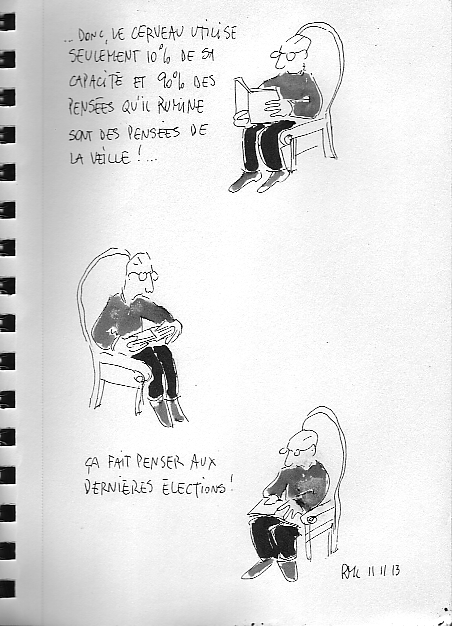 ...DONC, LE CERVEAU UTILISE
SEULEMENT 10% DE SA
CAPACITÉ ET 90% DES
PENSÉES QU'IL RUMINE
SONT DES PENSÉES DE
LA VEILLE !...
ÇA FAIT PENSER AUX
DERNIÈRES ÉLECTIONS!
11 11 13